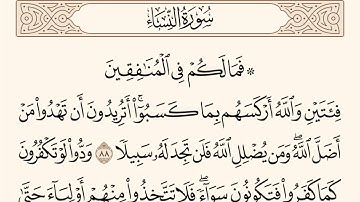 سُورَةُ النِّسَاءِ
۞ فَمَا لَكُمْ فِي ٱلْمُنَٰفِقِينَ
فِئَتَيْنِ وَٱللَّهُ أَرْكَسَهُم بِمَا كَسَبُوٓا۟ۚ أَتُرِيدُونَ أَن تَهْدُوا۟ مَنْ
أَضَلَّ ٱللَّهُۖ وَمَن يُضْلِلِ ٱللَّهُ فَلَن تَجِدَ لَهُۥ سَبِيلًا ٨٨ وَدُّوا۟ لَوْ تَكْفُرُونَ
كَمَا كَفَرُوا۟ فَتَكُونُونَ سَوَآءًۖ فَلَا تَتَّخِذُوا۟ مِنْهُمْ أَوْلِيَآءَ حَتَّىٰ